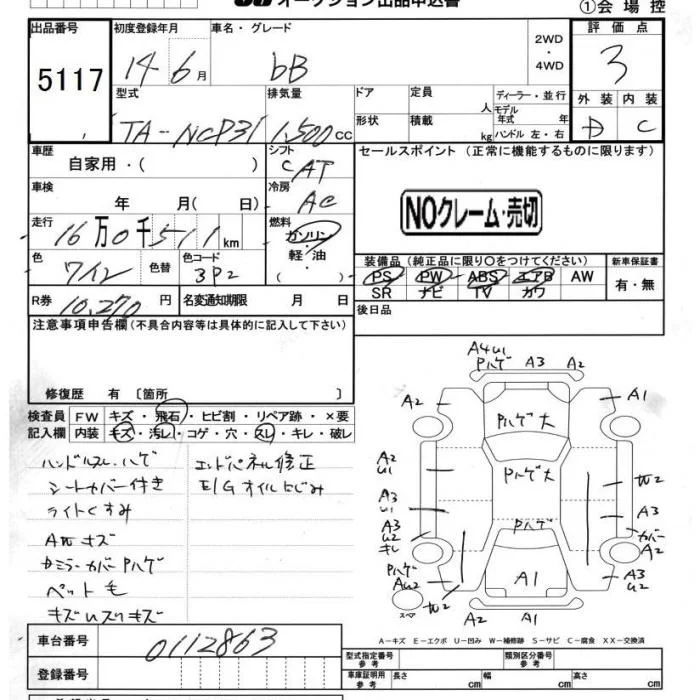 オークション出品申込書
①会場控
出品番号
5117
初度登録年月
14年6月
車名・グレード
bB
2WD
4WD
評価点
3
外装 内装
D C
型式
TA-NCP31
排気量
1,500cc
ドア
形状
定員 人
積載 kg
ディーラー・並行
モデル年式 年
ハンドル 左・右
車歴
自家用・( )
シフト
CAT
セールスポイント (正常に機能するものに限ります)
NOクレーム・売切
車検
年 月( 日)
冷房
AC
走行
16万0千511km
燃料
ガソリン
軽・油
( )
色
ワイン
色替
色コード
3P2
装備品(純正品に限り○をつけてください)
PS PW ABS エアB AW
SR ナビ TV カワ
新車保証書
有・無
R券
10,270円
名変通知期限 月 日
後日品
注意事項申告欄(不具合内容等は具体的に記入して下さい)
修復歴 有 〔箇所 〕
検査員記入欄
FW キズ・飛石・ヒビ割・リペア跡・×要
内装 キズ・汚レ・コゲ・穴・スレ・キレ・破レ
ハンドルスレ、ハゲ
シートカバー付き
ライトくすみ
AWキズ
ドミラーカバーPハゲ
ペット毛
エンドパネル修正
E/Gオイルにじみ
A4U1
Pハゲ
A3
A2
A2
A1
Pハゲ大
A2
U1
Pハゲ大
W2
A3
U1
A3
A3
U2
キレ
Pハゲ
カバー
A2
Pハゲ
AU2
A1
A3
U2
スペア
W2
A2
A1
A-キズ E-エクボ U-凹み W-補修跡 S-サビ C-腐食 XX-交換済
車台番号
0112863
登録番号
型式指定番号
参考
類別区分番号
参考
車庫証明用
参考
長さ cm
幅 cm
高さ cm